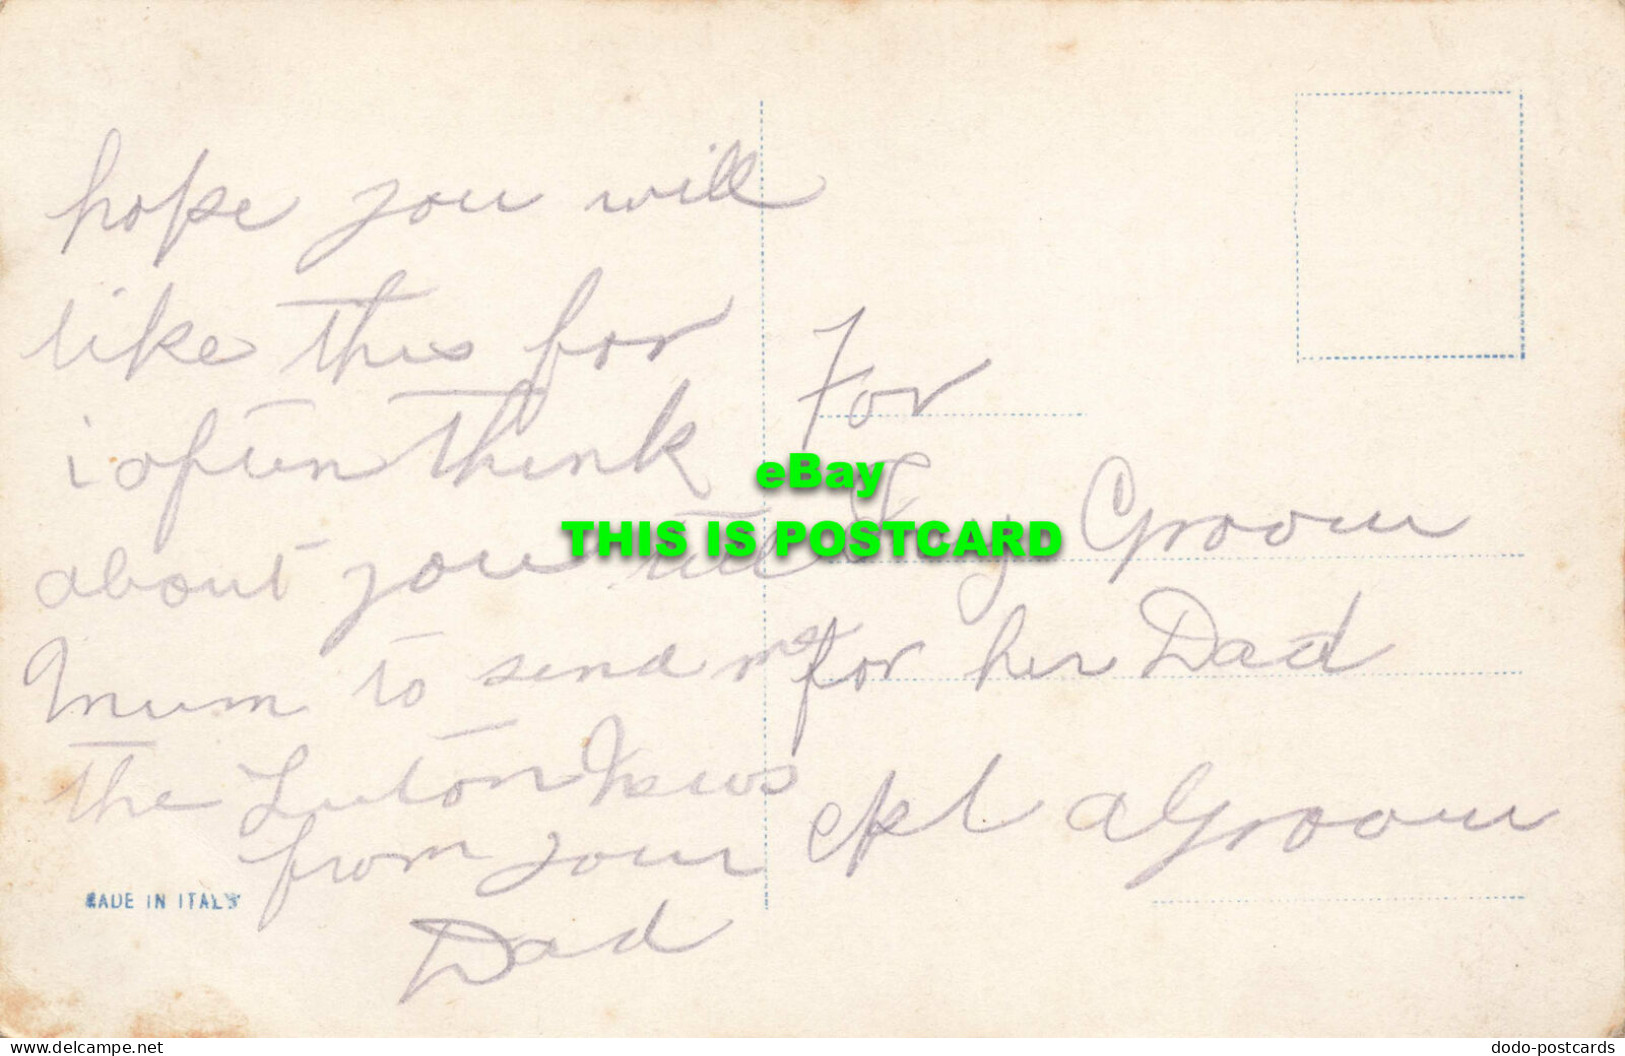 hope you will
like this for
i often think
about you tell
Mum to send me
the Luton News
from your
Dad
MADE IN ITALY
For
Groom
for her Dad
cpl a Groom
eBay
THIS IS POSTCARD
www.delcampe.net
dodo-postcards